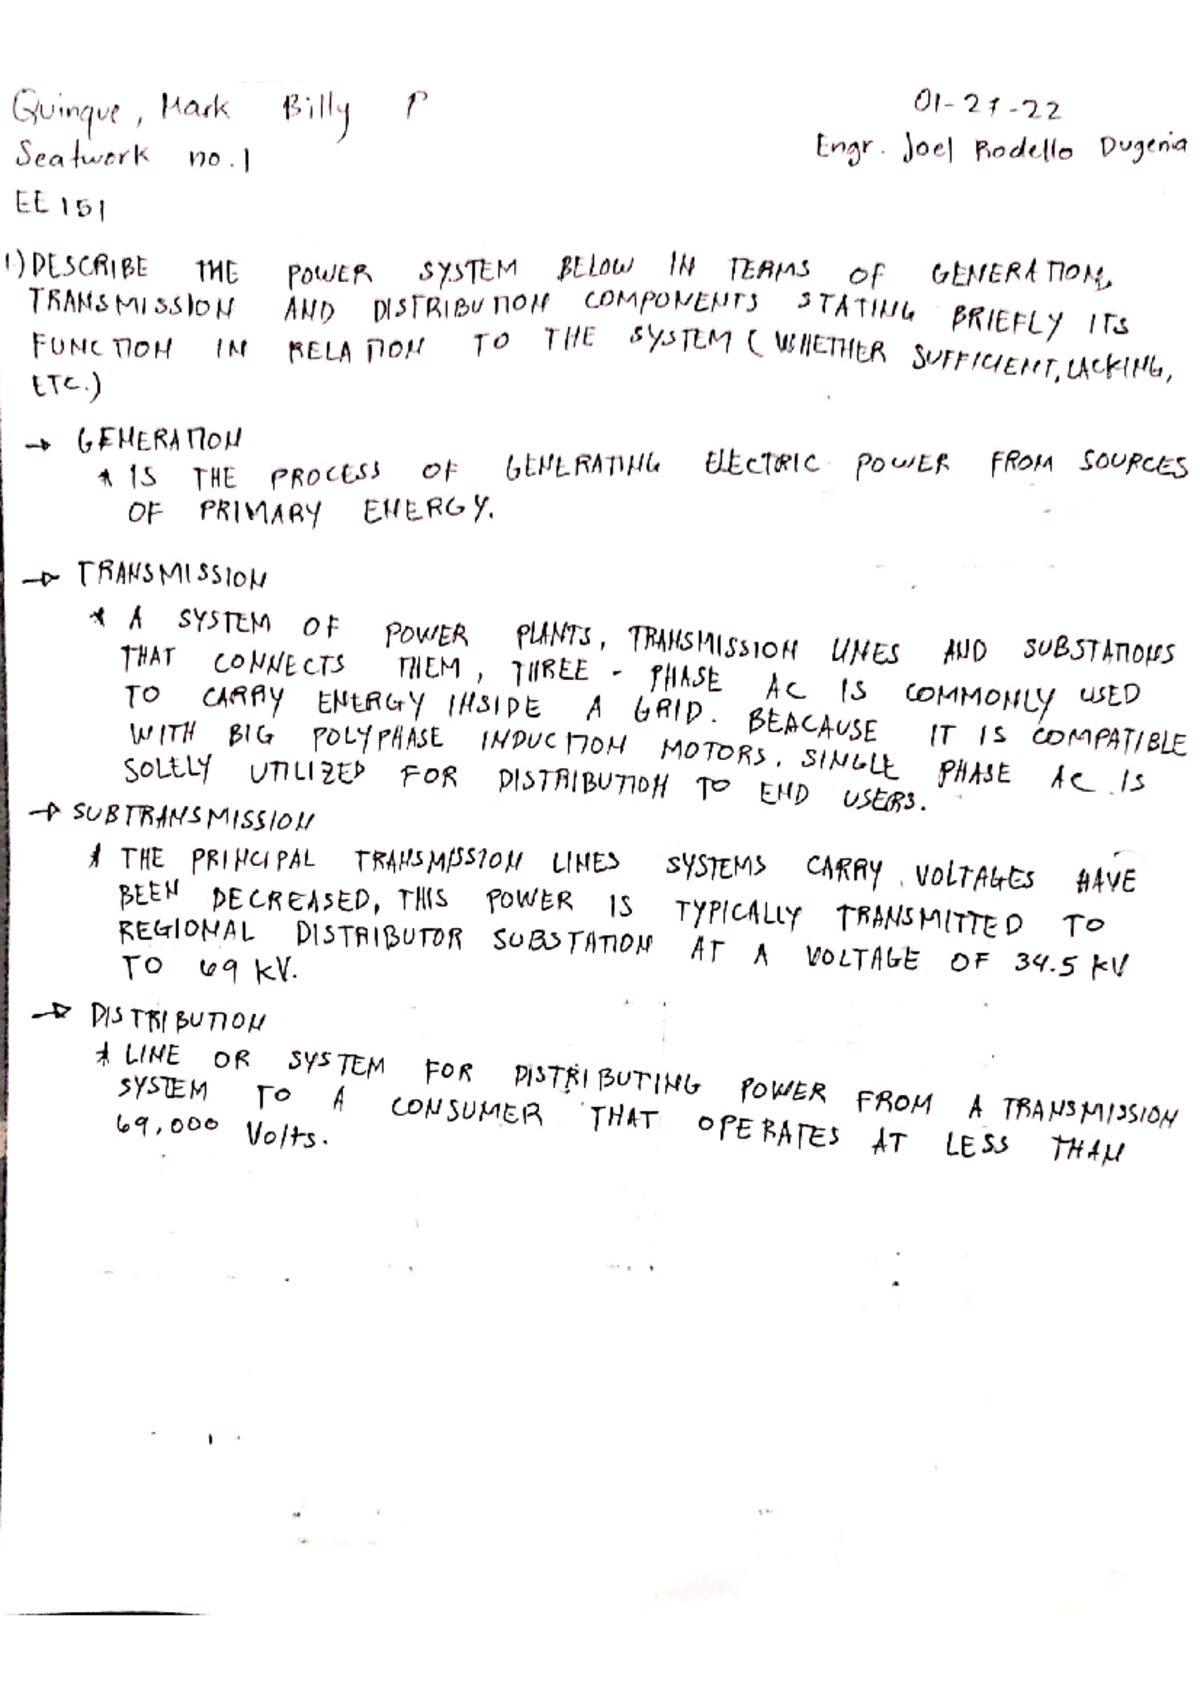 Quinque, Mark Billy P
01-27-22
Seatwork no.1
Engr. Joel Rodello Dugenia
EE 151
1.) DESCRIBE THE POWER SYSTEM BELOW IN TERMS OF GENERATION,
TRANSMISSION AND DISTRIBUTION COMPONENTS STATING BRIEFLY ITS
FUNCTION IN RELATION TO THE SYSTEM (WHETHER SUFFICIENT, LACKING,
ETC.)
→ GENERATION
* IS THE PROCESS OF GENERATING ELECTRIC POWER FROM SOURCES
OF PRIMARY ENERGY.
→ TRANSMISSION
* A SYSTEM OF POWER PLANTS, TRANSMISSION LINES AND SUBSTATIONS
THAT CONNECTS THEM, THREE - PHASE AC IS COMMONLY USED
TO CARRY ENERGY INSIDE A GRID. BEACAUSE IT IS COMPATIBLE
WITH BIG POLYPHASE INDUCTION MOTORS. SINGLE PHASE AC IS
SOLELY UTILIZED FOR DISTRIBUTION TO END USERS.
→ SUBTRANSMISSION
* THE PRINCIPAL TRANSMISSION LINES SYSTEMS CARRY VOLTAGES HAVE
BEEN DECREASED, THIS POWER IS TYPICALLY TRANSMITTED TO
REGIONAL DISTRIBUTOR SUBSTATION AT A VOLTAGE OF 34.5 KV
TO 69 KV.
→ DISTRIBUTION
* LINE OR SYSTEM FOR DISTRIBUTING POWER FROM A TRANSMISSION
SYSTEM TO A CONSUMER THAT OPERATES AT LESS THAN
69,000 Volts.